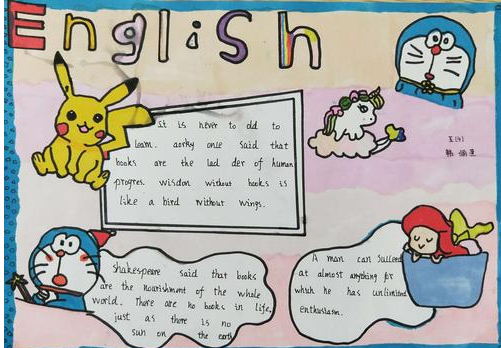 English
It is never to old to
loarn. aorky once said that
books are the lad der of human
progres. wisdon without books is
like a bird without wings.
五(4)
韩
shakespeare said that books
are the nourishment of the whole
world. There are no books in life,
just as there is no
sun on the earth
A man can Succeed
at almost anything for
which he has unlimited
enthusiasm.